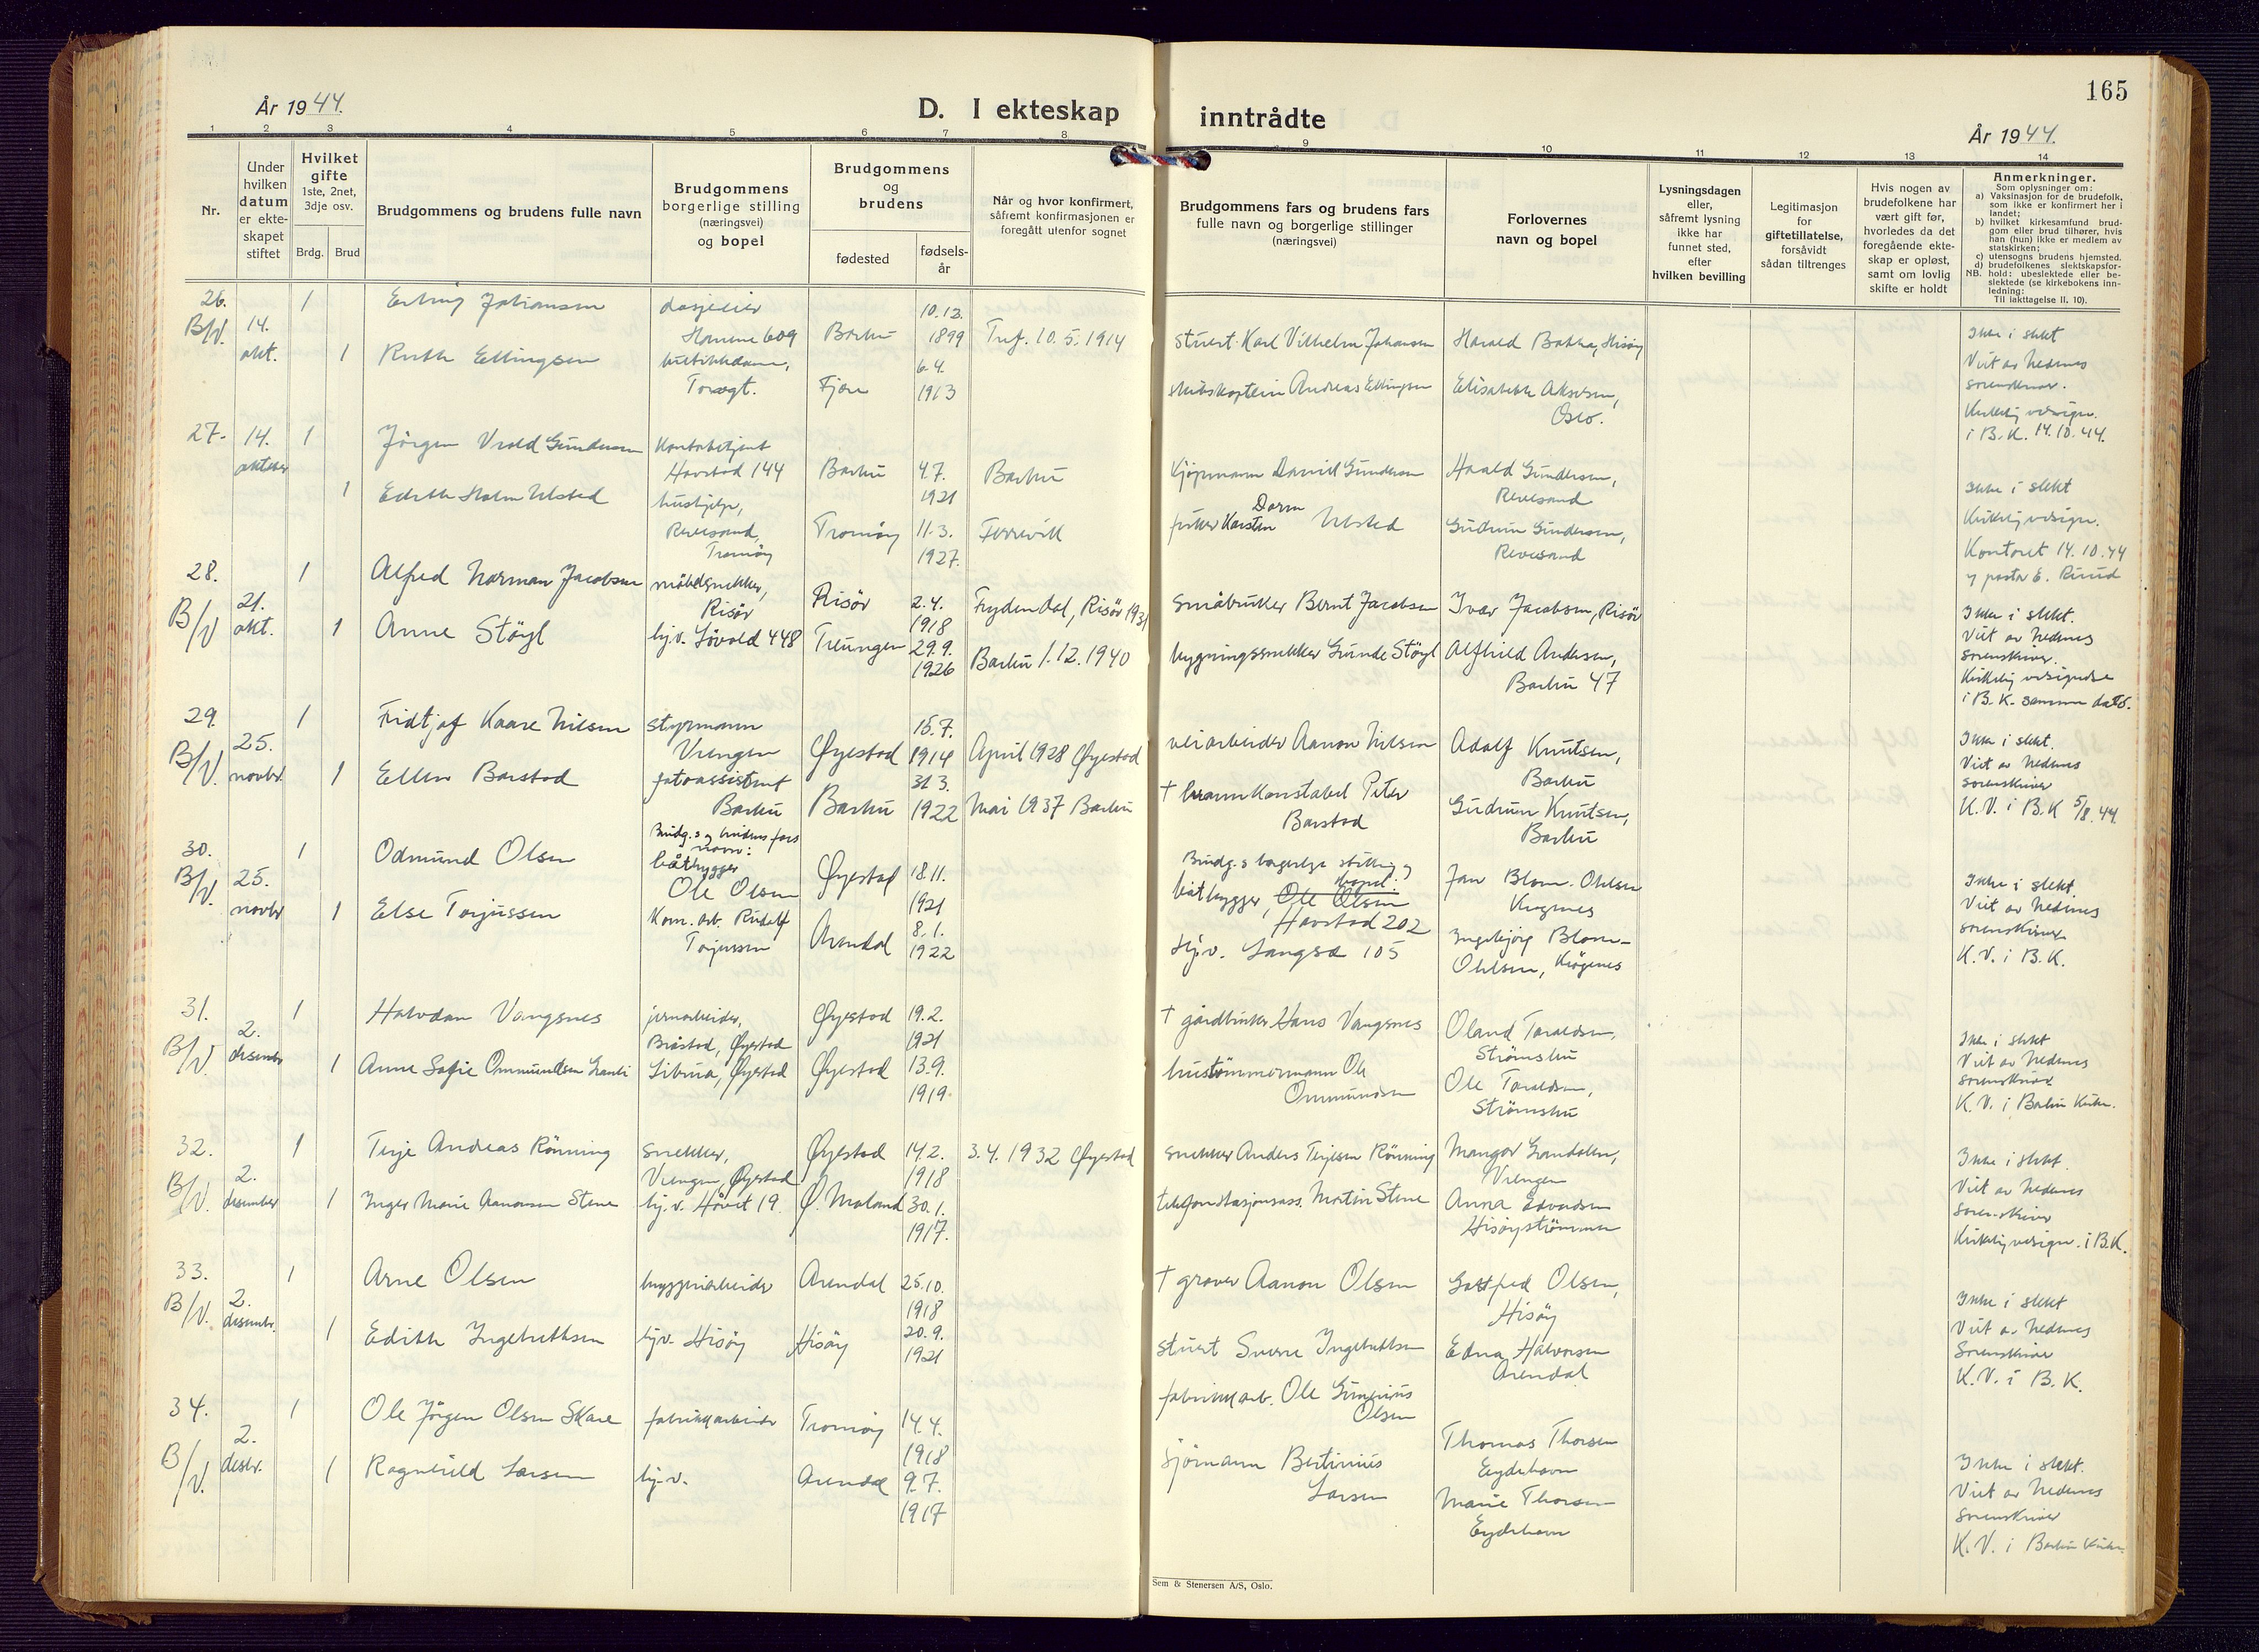 165
År 1944.
D. I ekteskap inntrådte
År 1944.
1 2 3 4 5 6 7 8 9 10 11 12 13 14
Nr.
Under hvilken datum er ekte-skapet stiftet
Hvilket gifte 1ste, 2net, 3dje osv.
Brdg. Brud
Brudgommens og brudens fulle navn
Brudgommens borgerlige stilling (næringsvei) og bopel
Brudgommens og brudens
fødested
fødsels-år
Når og hvor konfirmert, såfremt konfirmasjonen er foregått utenfor sognet
Brudgommens fars og brudens fars fulle navn og borgerlige stillinger (næringsvei)
Forlovernes navn og bopel
Lysningsdagen eller, såfremt lysning ikke har funnet sted, efter hvilken bevilling
Legitimasjon for giftetillatelse, forsåvidt sådan tiltrenges
Hvis nogen av brudefolkene har vært gift før, hvorledes da det foregående ekte-skap er opløst, samt om lovlig skifte er holdt
Anmerkninger.
Som oplysninger om:
a) Vaksinasjon for de brudefolk, som ikke er konfirmert her i landet;
b) hvilket kirkesamfund brud-gom eller brud tilhører, hvis han (hun) ikke er medlem av statskirken;
c) utensogns brudens hjemsted.
d) brudefolkenes slektskapsfor-hold: ubeslektede eller be-slektede (se kirkebokens inn-ledning:
NB. Til iakttagelse II. 10).
26. 1 Erling Johansen
10.12.
B/V. 14. okt.
Barbu 1899
10.5.1914
stuert Karl Vilhelm Johansen
Harald Bakka, Hisøy
1 Ruth Ellingsen
Fjære 6.4. 1913
skibskaptein Andreas Ellingsen
Elisabeth
Oslo.
Ikke i slekt
Viet av Nedenes sorenskriver.
i B.K. 14.10.44.
27. 14. oktober 1
Jörgen Vrold Gundersen
Havstad 144
Barbu 4.7. 1921
Barbu
Kjøpmann David Gundersen
Harald Gundersen,
Revesand
1 Edith Holm Ulsted
hushjelp,
Revesand, Tromøy
Tromøy 11.3. 1927.
Færvik
fisker Karsten Ulsted
Gudrun Gundersen,
Revesand
Ikke i slekt
Kontoret 14.10.44
28. 1 Alfred Norman Jacobsen
møbelsnekker, Risør
Risör 2.4. 1918
Frydendal, Risör 1931
Småbruker Bernt Jacobsen
Ivar Jacobsen, Risör
B/V 21. okt.
1 Anne Stöyl
hj.v. Løvold 448
Treungen 29.9. 1926
Barbu 1.12.1940
bygningssnekker Gunde Stöyl
Alfhild Andersen,
Barbu 47
Ikke i slekt.
Viet av Nedenes sorenskriver.
Kirkelig velsignelse
i B.K. samme dato.
29. 1 Fridtjof Kaare Nilsen
styrmann
Vrengen
Øyestad 15.7. 1914
April 1928 Øyestad
veiarbeider Aanon Nilsen
Adolf Knutsen,
Barbu
B/V. 25. novbr.
1 Ellen Barstad
fotoassistent
Barbu
Barbu 31.3. 1922
Mai 1937 Barbu
† brannkonstabel Peter
Barstad
Gudrun Knutsen,
Barbu
Ikke i slekt.
Viet av Nedenes
sorenskriver
K.V. i B.K 5/8.44.
30. 1 Odmund Olsen
Brudg.s og brudens fars navn:
båtbygger
Ole Olsen
Øyestad 18.11. 1921
Brudg.s borgerlige stilling og bopel:
båtbygger, Ole Olsen
Havstad 202
Jan Blom-Ohlsen
B/V. 25. novbr
1 Else Torjussen
Kom. arb. Rudolf
Torjussen
Arendal 8.1. 1922
Hj.v. Langsæ 105
Ingebjørg Blom-
Ohlsen, Krøgenes
Ikke i slekt.
Viet av Nedenes
sorenskriver
K.V. i B.K.
31. 1 Halvdan Vangsnes
jernarbeider,
Bråstad, Øyestad
Øyestad 19.2. 1921
† gårdbruker Hans Vangsnes
Oland Taraldsen,
Strömsbu
B/V. 2. desembr
1 Anne Sofie Ommundsen
Libru, Øyestad
Øyestad 13.9. 1919.
hustömmermann Ole
Ommundsen
Ole Taraldsen,
Strömsbu
Ikke i slekt
Viet av Nedenes
sorenskriver
K.V. i Barbu Kirke.
32. 1 Terje Andreas Rönning
snekker,
Vrengen, Øyestad
Øyestad 14.2. 1918
3.4.1932 Øyestad
snekker Anders Terjesen Rönning
Mangor
Vrengen
B/V. 2. desember
1 Inger Marie Aanonsen Stene
hj.v. Håvet 19.
Ø. Moland 30.1. 1917.
telefonstasjonsass. Martin Stene
Anna Edvardsen
Hisøystrømmen
Ikke i slekt.
Viet av Nedenes
Sorenskriver
Kirkelig velsign. i B.K.
33. 1 Arne Olsen
byggearbeider
Arendal 25.10. 1918
† graver Aanon Olsen
Gottfred Olsen,
Hisöy
B/V. 2. desembr.
1 Edith Ingebrethsen
hj.v. Hisöy
Hisöy 20.9. 1921
stuert Sverre Ingebrethsen
Edna Halvorsen
Arendal
Ikke i slekt
Viet av Nedenes
Sorenskriver
K.V. i B.K.
34. 1 Ole Jörgen Olsen Skare
fabrikkarbeider
Tromöy 14.4. 1918
fabrikkarb. Ole Gunerius
Olsen
Thomas Thorsen
Eydehavn
B/V. 2. desbr.
1 Ragnhild Larsen
hj.v.
Arendal 9.7. 1917
Sjömann Bertinius
Larsen
Marie Thorsen
Eydehavn
Ikke i slekt.
Viet av Nedenes
Sorenskriver
K.V. i Barbu Kirke.
Sem & Stenersen A/S, Oslo.